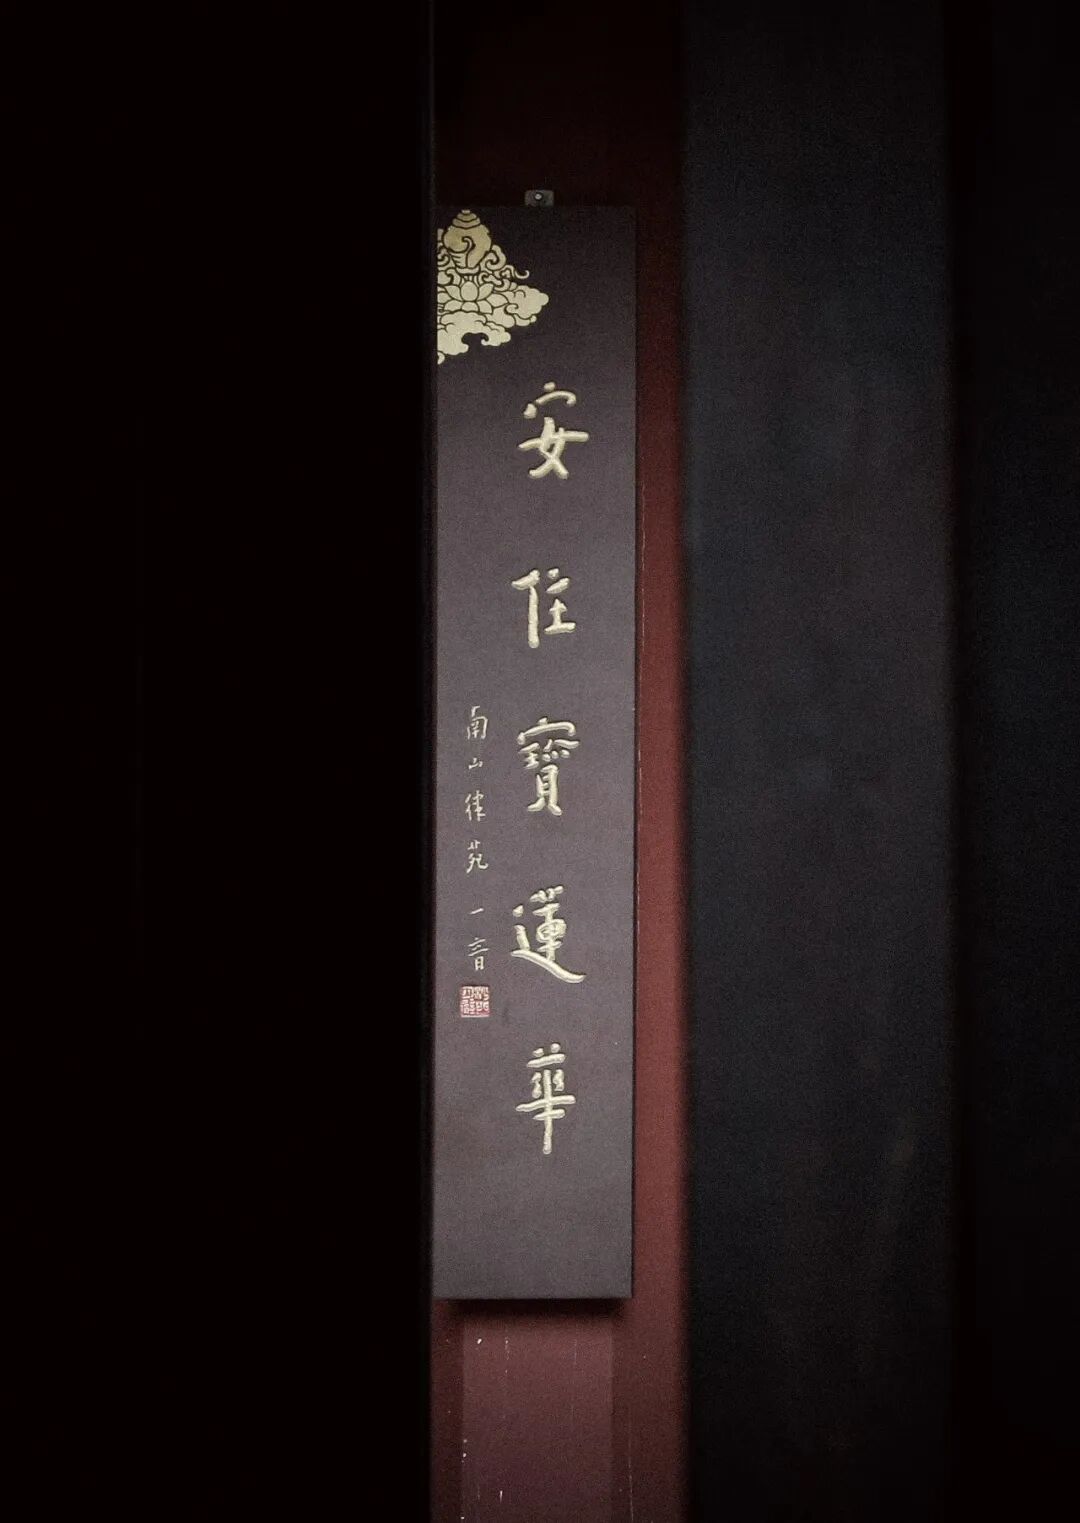 安住寶蓮華
南山律苑 一音